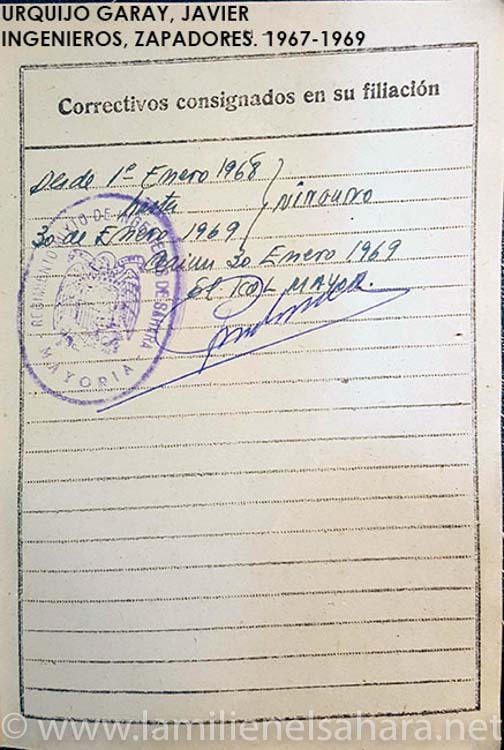 URQUIJO GARAY, JAVIER
INGENIEROS, ZAPADORES. 1967-1969
Correctivos consignados en su filiación
Desde 1º Enero 1968
hasta
Ninguno
30 de Enero 1969
30 Enero 1969
El MAYOR.
REGIMIENTO MIXTO DE INGENIEROS DE CANARIAS
MAYORIA
© www.lamilienelsahara.net